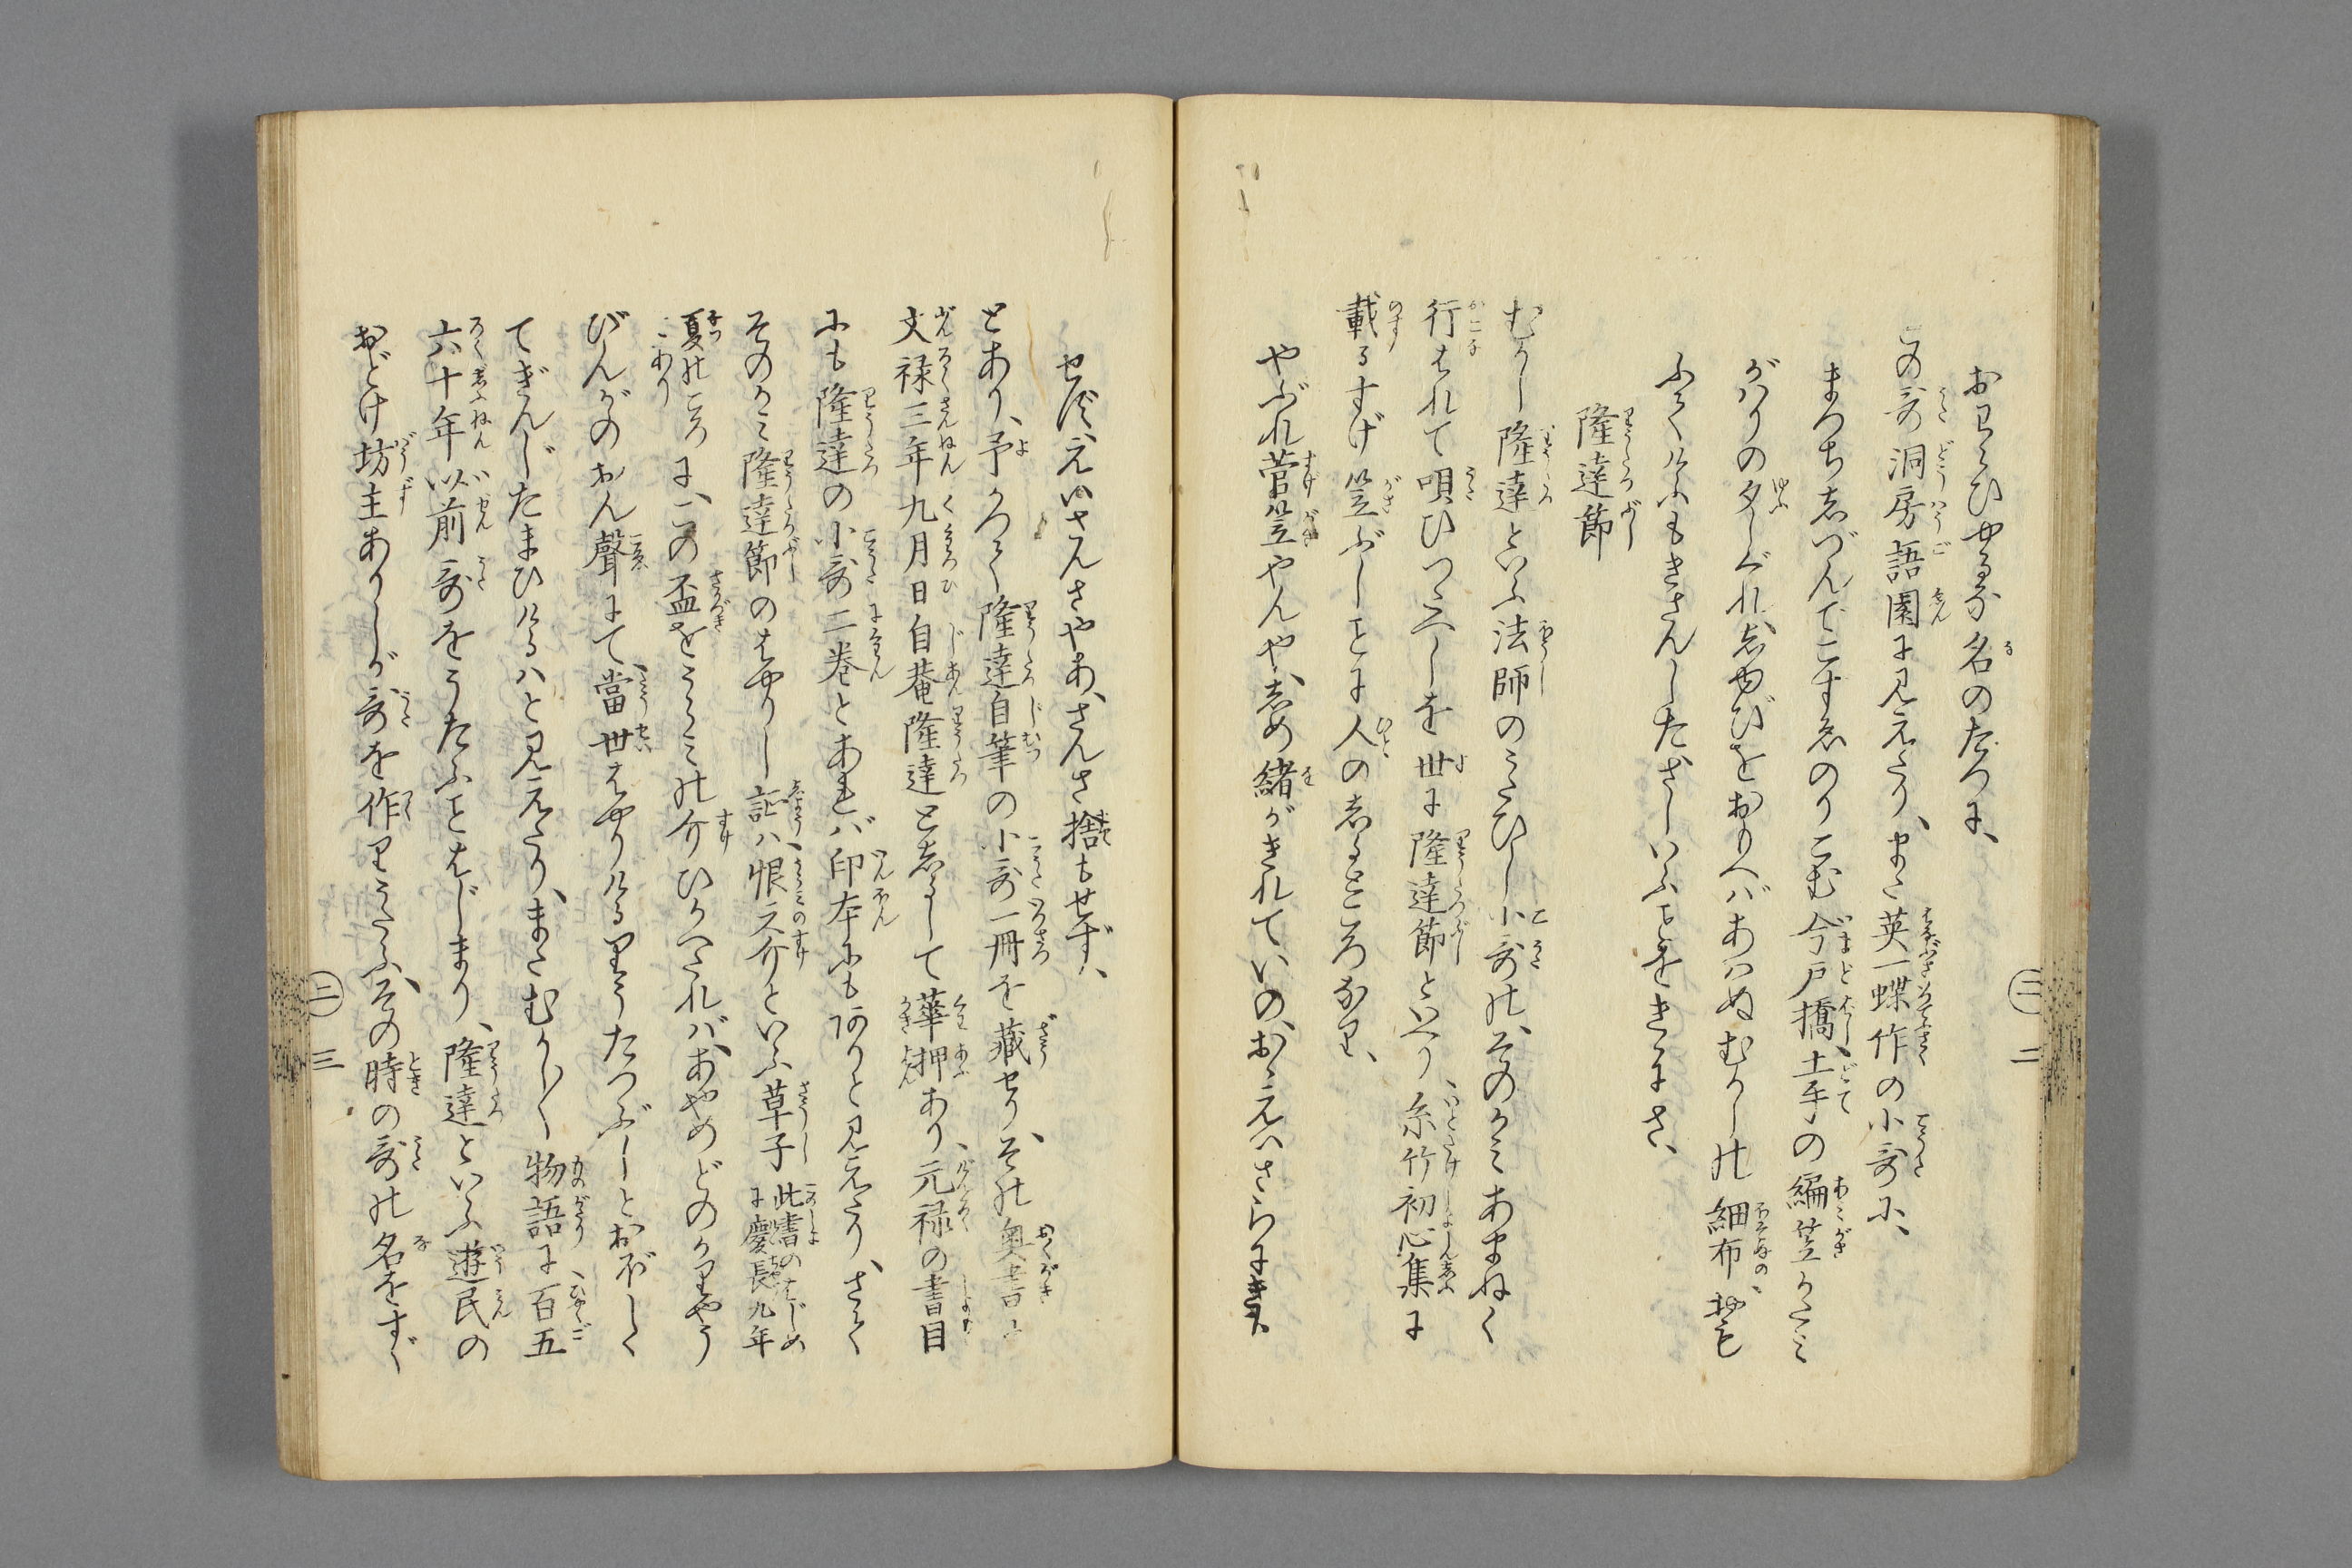 おもひやるな名のたつに、
この哥洞房語園に見えたり、また英一蝶作の小哥に、
まつちしづんでこすゑのりこむ今戸橋土手の編笠かたミ
がハりの夕しぐれ、しやみせんをおもへばあハぬむかしの細布、
ふてくけふもきさんしたざしいふことをきかさに、
隆達節
むかし隆達といふ法師のうたひし小哥の、そのかミあまねく
行ハれて唄ひつたへしを世に隆達節といへり、糸竹初心集に
載るすげ笠ぶしことに人のしるところなり、
やぶれ菅笠やんや、しめ緒がきれていの、おゝえいさらにきも
せず、えいさんさやあ、さんさ捨もせず、
とあり、予かつて隆達自筆の小哥一冊を藏せり、その奥書ニ
文禄三年九月日自菴隆達としるして華押あり、元禄の書目
にも隆達の小哥二巻とあれバ印本にもありと見えたり、さて
そのかミ隆達節のはやりし証ハ、恨之介といふ草子此書のはじめ
に慶長九年
夏のころ
とありに、この盃をうらミの介ひかへたれバ、あやめどのかりやう
びんがのおん聲にて、當世はやりけるりうたつぶしとおぼしく
てぎんじたまひけるハと見えたり、またむかし〱物語に百五
六十年以前哥をうたふことはじまり、隆達といふ遊民の
おどけ坊主ありしが哥を作りうたふ、その時の哥の名をすぐ
二
三
二